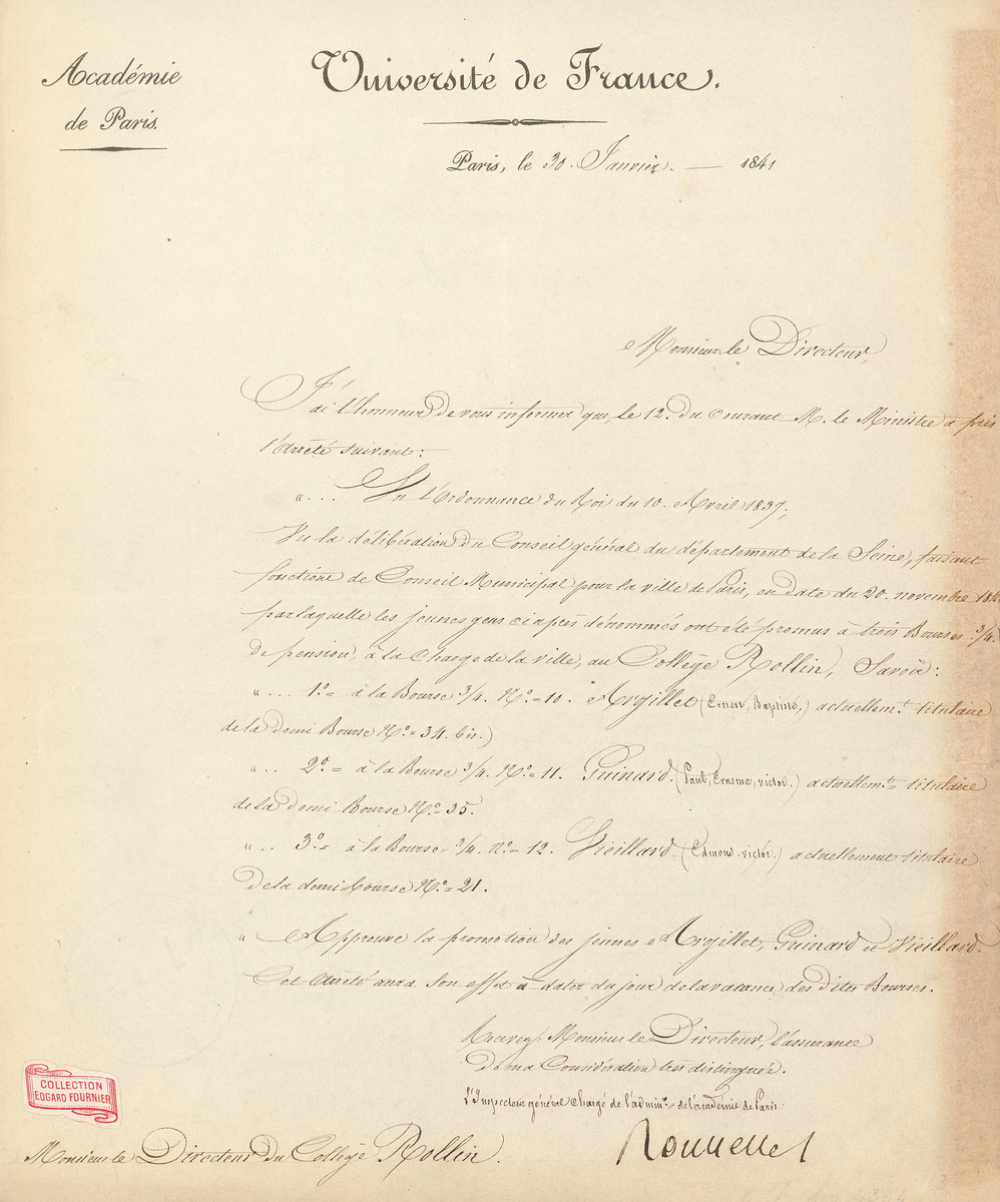 Académie
de Paris.
Université de France.
Paris, le 30. Janvier. — 1841
Monsieur le Directeur,
J'ai l'honneur de vous informer que, le 12. du Courant M. le Ministre a pris
l'arrêté suivant :
«.... Vu l'Ordonnance du Roi du 10. Avril 1837;
Vu la délibération du Conseil général du département de la Seine, faisant
fonctions de Conseil Municipal pour la ville de Paris, en date du 20. novembre
par laquelle les jeunes gens ci après dénommés ont été promus à trois Bourses 3/4.
de pension, à la Charge de la ville, au Collège Rollin, Savoir :
«.... 1.º = à la Bourse 3/4. Nº = 10. Argillet (Ernest, Baptiste,) actuellem.t titulaire
de la demi Bourse Nº = 34. bis.)
«... 2.º = à la Bourse 3/4. Nº = 11. Guinard. (Paul, Erasme, victor.) actuellem.t = titulaire
de la demi Bourse Nº = 35.
«.. 3.º = à la Bourse 3/4. nº = 12. Vieillard (Edmond. victor.) actuellement titulaire
de la demi bourse Nº = 21.
« Approuve la promotion des jeunes Argillet, Guinard et Vieillard.
Cet arrêté aura son effet à dater du jour de la vacance des dites Bourses.
Recevez, Monsieur le Directeur, l'assurance
de ma Considération très distinguée.
L'Inspecteur général chargé de l'admin.on de l'académie de Paris
Rousselle
COLLECTION
EDGARD FOURNIER
Monsieur le Directeur du Collège Rollin.